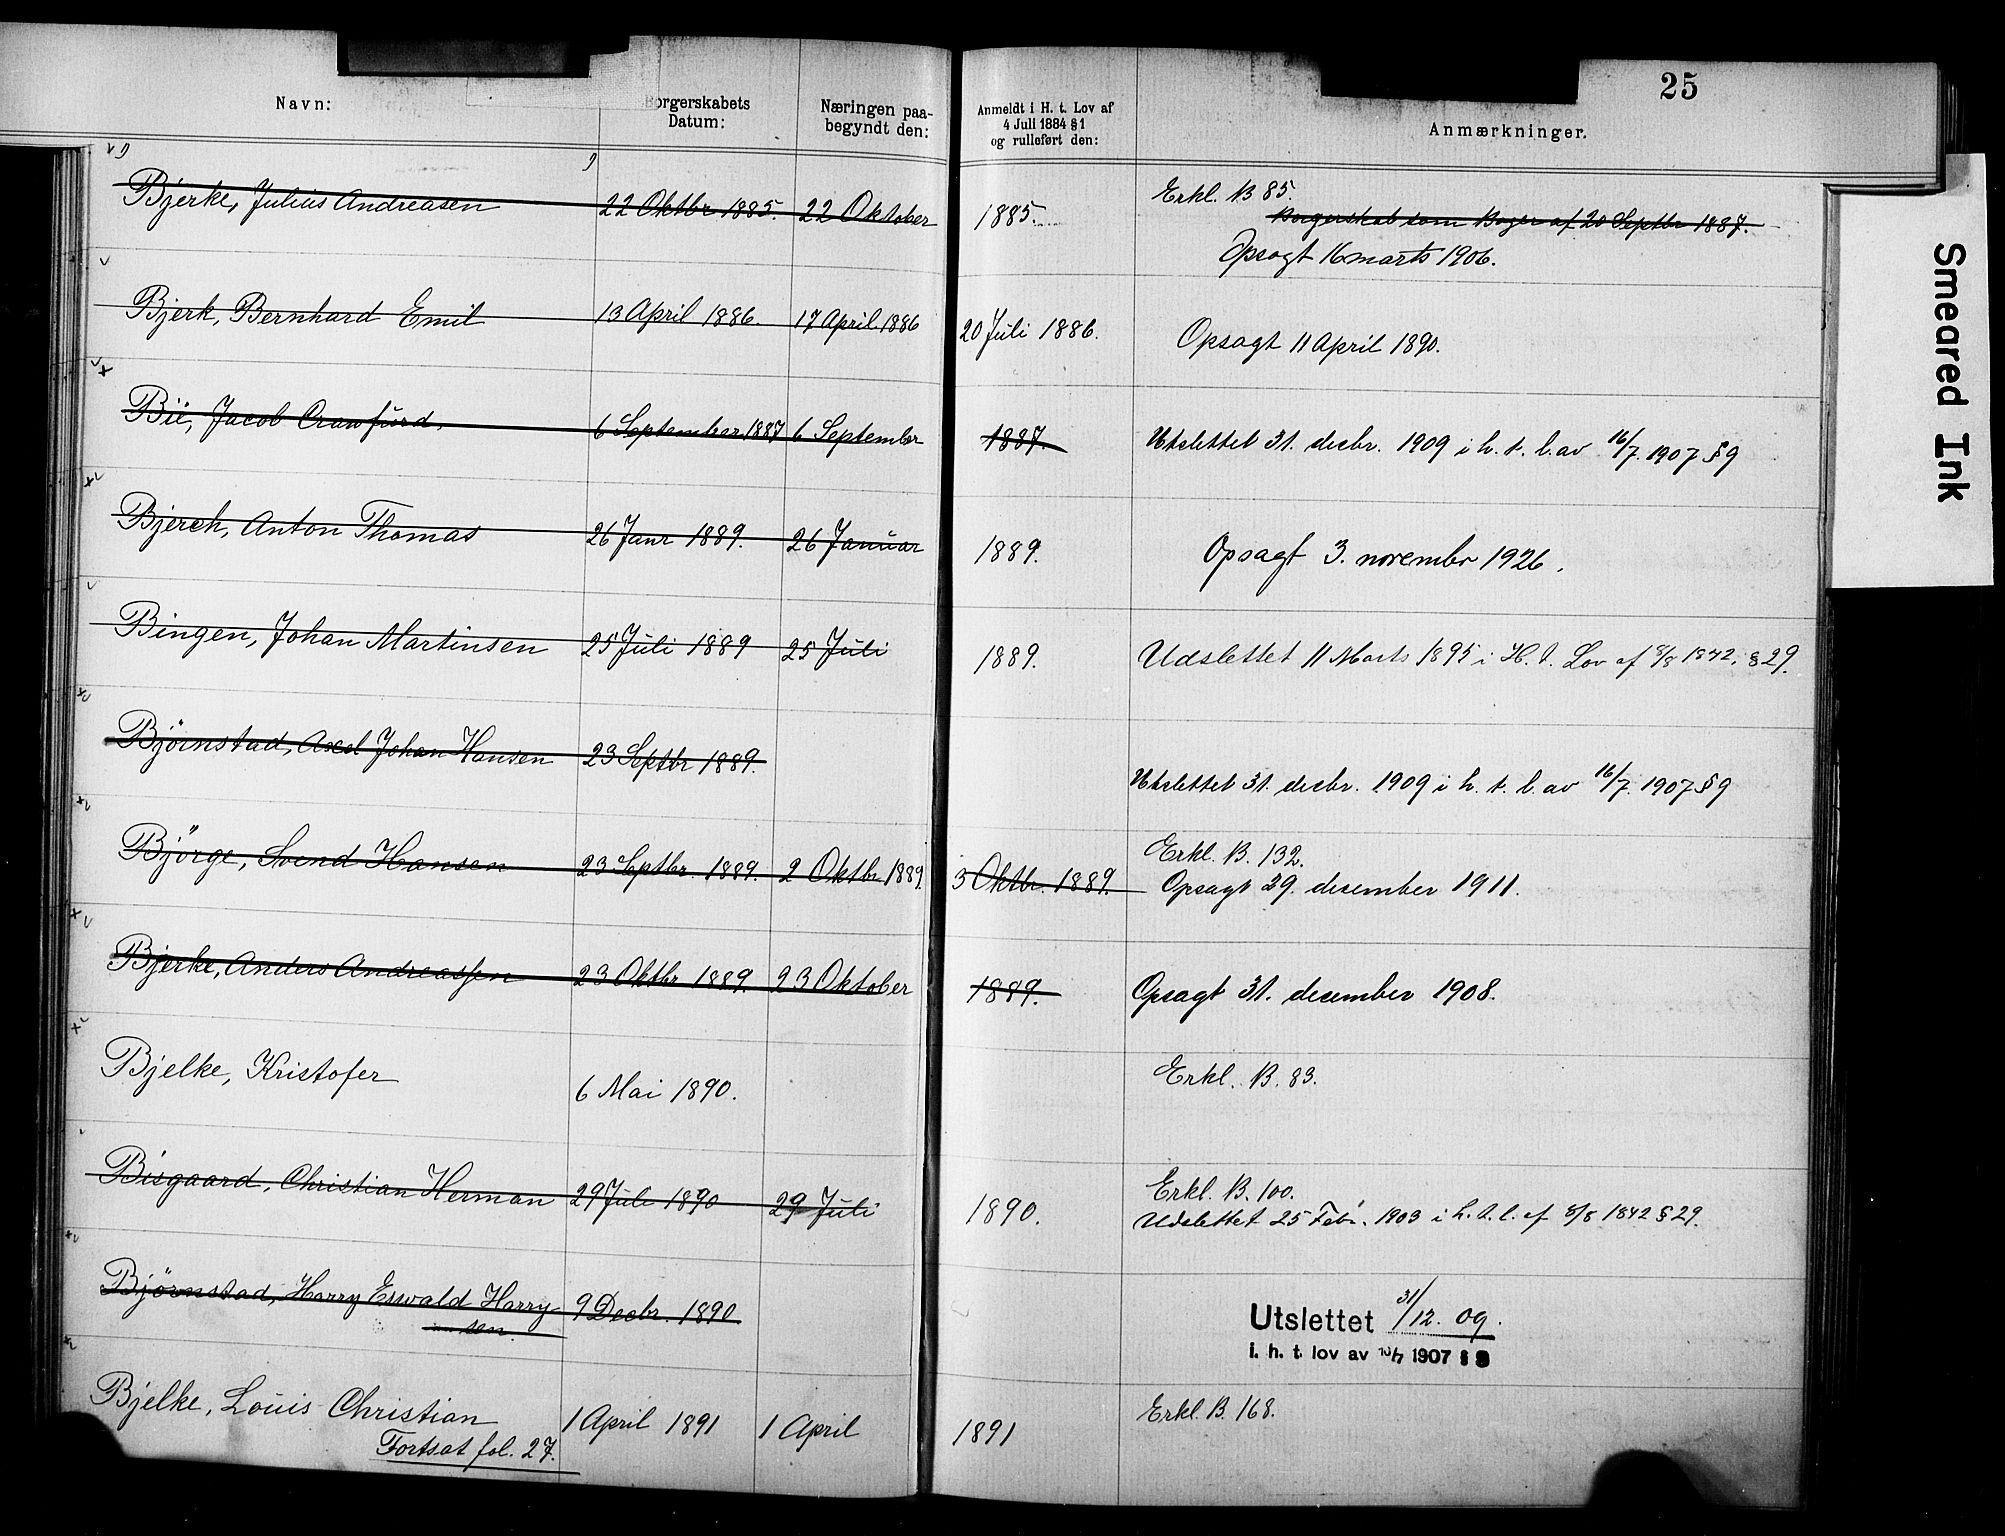 25
Navn:
Borgerskabets Datum:
Næringen paa-
begyndt den:
Anmeldt i H. t. Lov af
4 Juli 1884 § 1
og rulleført den:
Anmærkninger.
Bjerke, Julius Andreasen 22 Oktbr 1885. 22 Oktober 1885. Erkl. B 85.
Borgerskab som Bager af 20 Septbr 1887.
Opsagt 16 marts 1906.
Bjerk, Bernhard Emil 13 April 1886. 17 April 1886 20 Juli 1886. Opsagt 11 April 1890.
Bie, Jacob Crawfurd. 6 September 1887 6 September 1887. Utslettet 31. decbr. 1909 i h. t. l. av 16/7. 1907 § 9
Bjerch, Anton Thomas 26 Janr 1889. 26 Januar 1889. Opsagt 3. novembr 1926.
Bingen, Johan Martinsen 25 Juli 1889 25 Juli 1889. Udslettet 11 Marts 1895 i H. t. Lov af 8/8 1842, § 29.
Björnstad, Axel Johan Hansen 23 Septbr 1889. Utslettet 31. decbr. 1909 i h. t. l. av 16/7. 1907 § 9
Björge, Svend Hansen 23 Septbr. 1889. 2 Oktbr 1889. 3 Oktbr. 1889. Erkl. B. 132.
Opsagt 29. desember 1911.
Bjerke, Anders Andreassen 23 Oktbr 1889. 23 Oktober 1889. Opsagt 31. december 1908.
Bjelke, Kristofer 6 Mai 1890. Erkl. B. 83.
Bisgaard, Christian Herman 29 Juli 1890 29 Juli 1890. Erkl. B. 100.
Udslettet 25 Febr. 1903 i h. t. l. af 8/8 1842 § 29.
Björnstad, Harry Eswald Harry-
sen. 9 Decbr. 1890 Utslettet 31/12. 09.
i. h. t. lov av 16/7 1907 § 9
Bjelke, Louis Christian 1 April 1891 1 April 1891 Erkl. B. 168.
Fortsat fol. 27.
Smeared Ink